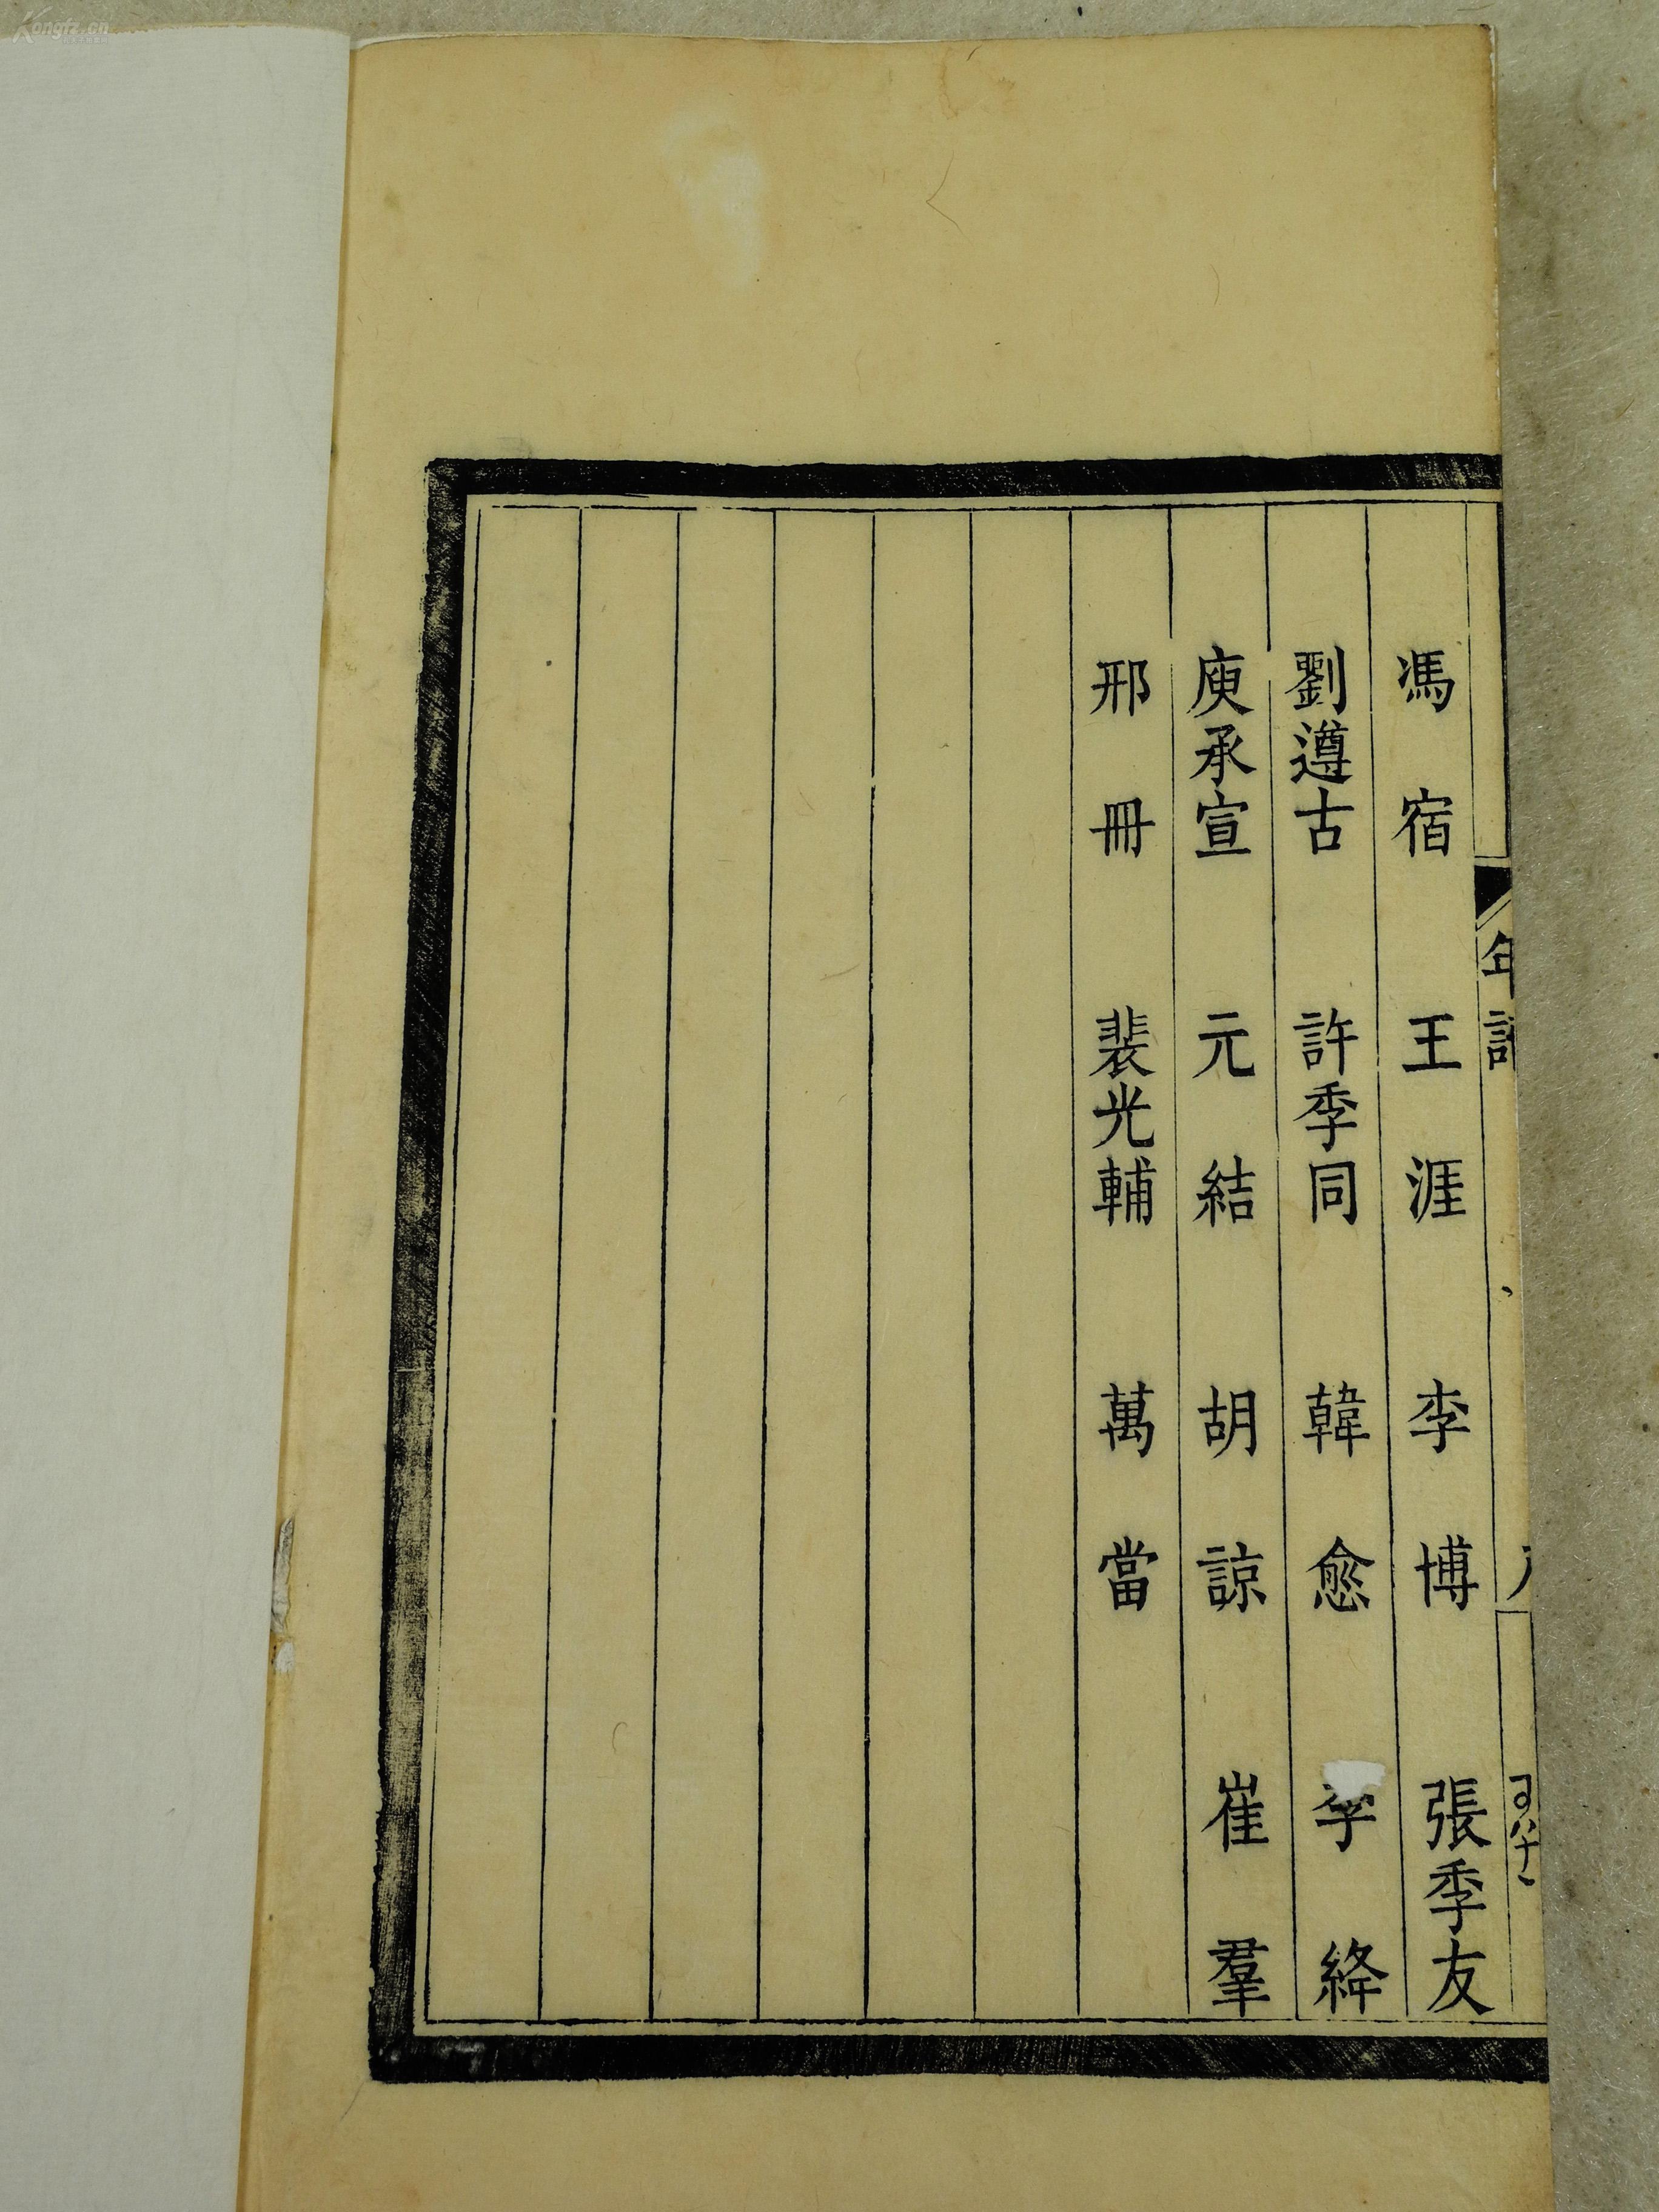 Kongfz.cn
年譜
馮宿 王涯 李博 張季友
劉遵古 許季同 韓愈 李絳
庾承宣 元結 胡諒 崔羣
邢冊 裴光輔 萬當